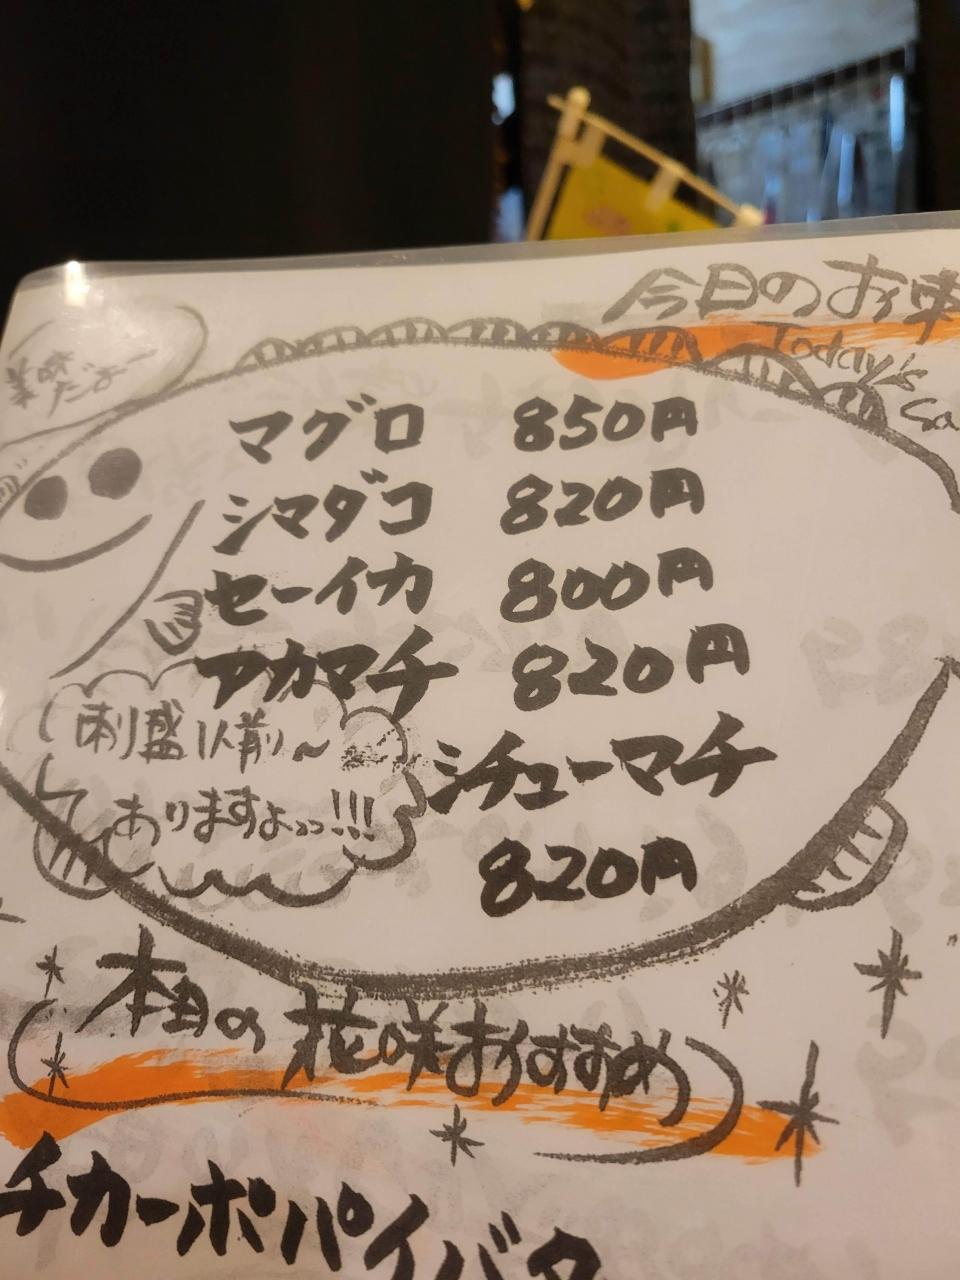 今日のお刺
Today's
Sa
美味だよー
マグロ 850円
シマダコ 820円
セーイカ 800円
アカマチ 820円
シチューマチ
820円
刺盛1人前〜
ありますよっっ!!!
本日の花咲おすすめ
チカーポパイバタ